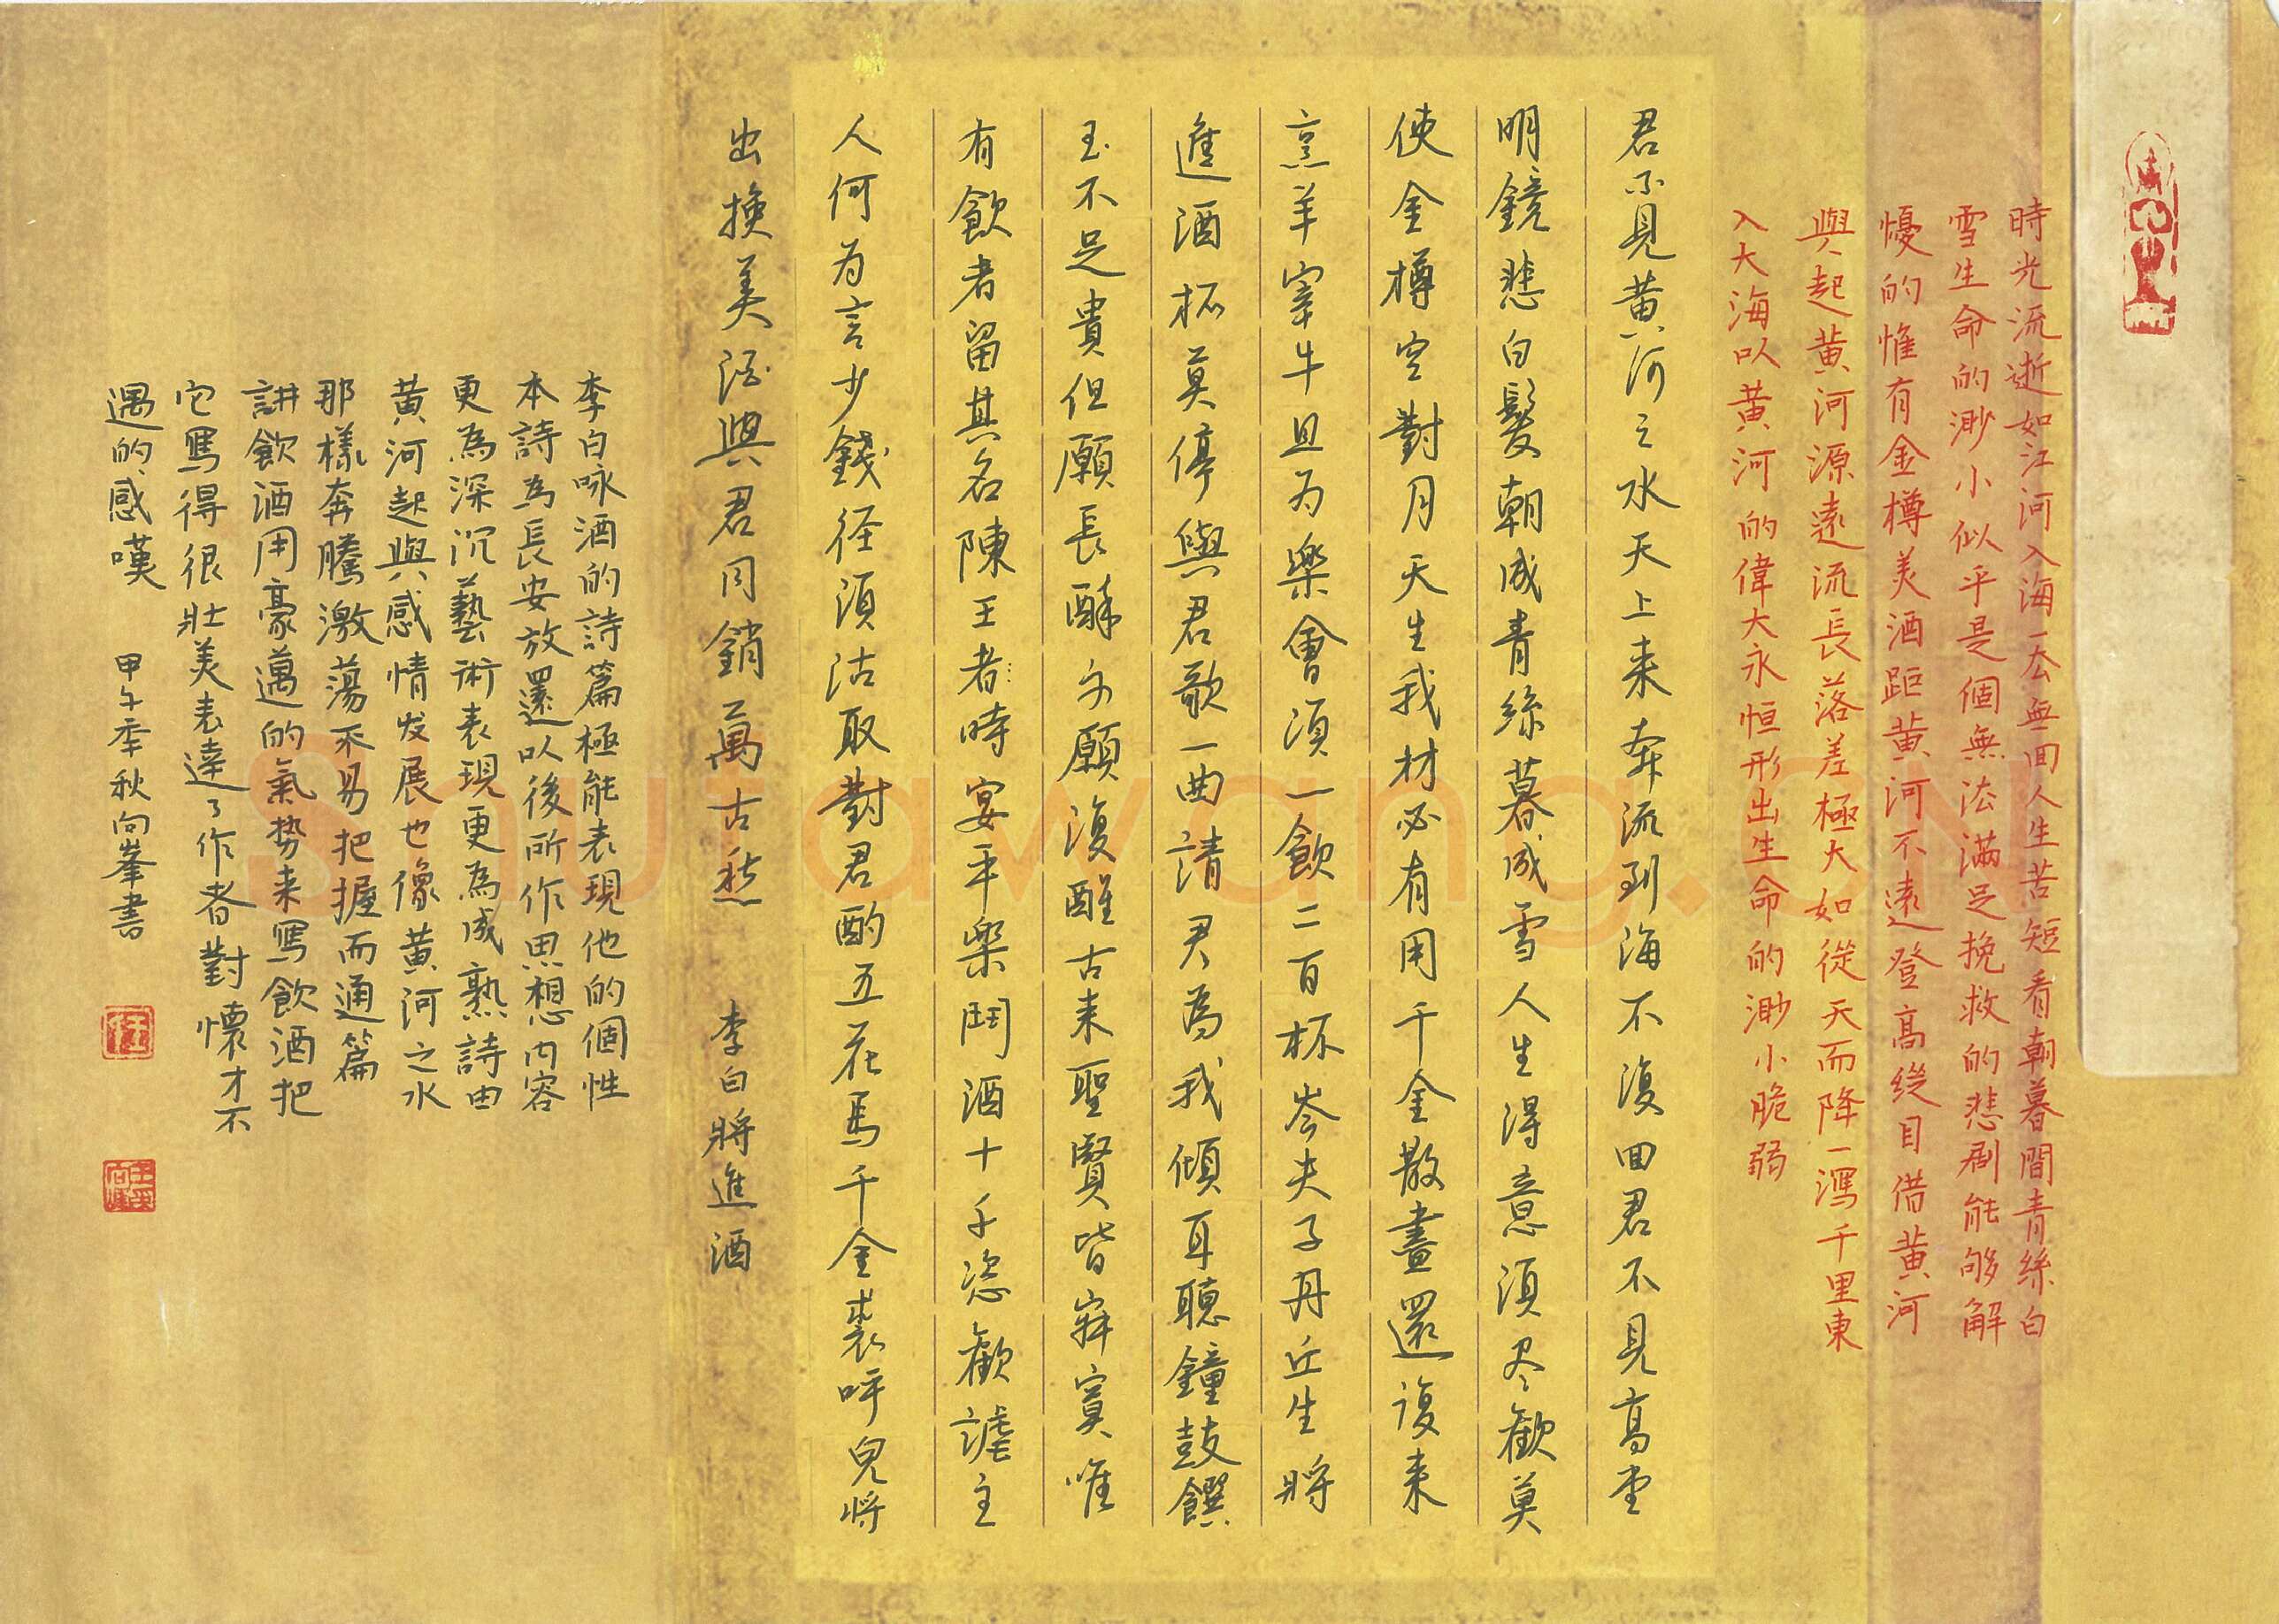 時光流逝如江河入海一去無回人生苦短看朝暮間青絲白
雪生命的渺小似乎是個無法滿足挽救的悲剧能够解
憂的惟有金樽美酒距黄河不遠登高縱目借黄河
與起黄河源遠流長落差極大如從天而降一瀉千里東
入大海以黄河的偉大永恒形出生命的渺小脆弱
君不見黄河之水天上来奔流到海不復回君不見高堂
明鏡悲白髮朝成青絲暮成雪人生得意須尽歡莫
使金樽空對月天生我材必有用千金散盡還復来
烹羊宰牛且为樂會須一飲三百杯岑夫子丹丘生將
進酒杯莫停與君歌一曲請君為我傾耳聽鐘鼓饌
玉不足貴但願長醉不願復醒古来聖賢皆寂寞唯
有飲者留其名陳王者時宴平樂鬥酒十千恣歡謔主
人何为言少錢径須沽取對君酌五花馬千金裘呼兒將
出換美酒與君同銷萬古愁 李白將進酒
李白咏酒的詩篇極能表現他的個性
本詩為長安放還以後所作思想内容
更為深沉藝術表現更為成熟詩由
黄河起興感情发展也像黄河之水
那樣奔騰激蕩不易把握而通篇
講飲酒用豪邁的氣势来寫飲酒把
它寫得很壯美表達了作者對懷才不
遇的感嘆 甲午季秋向峯書
Shufawang.CN